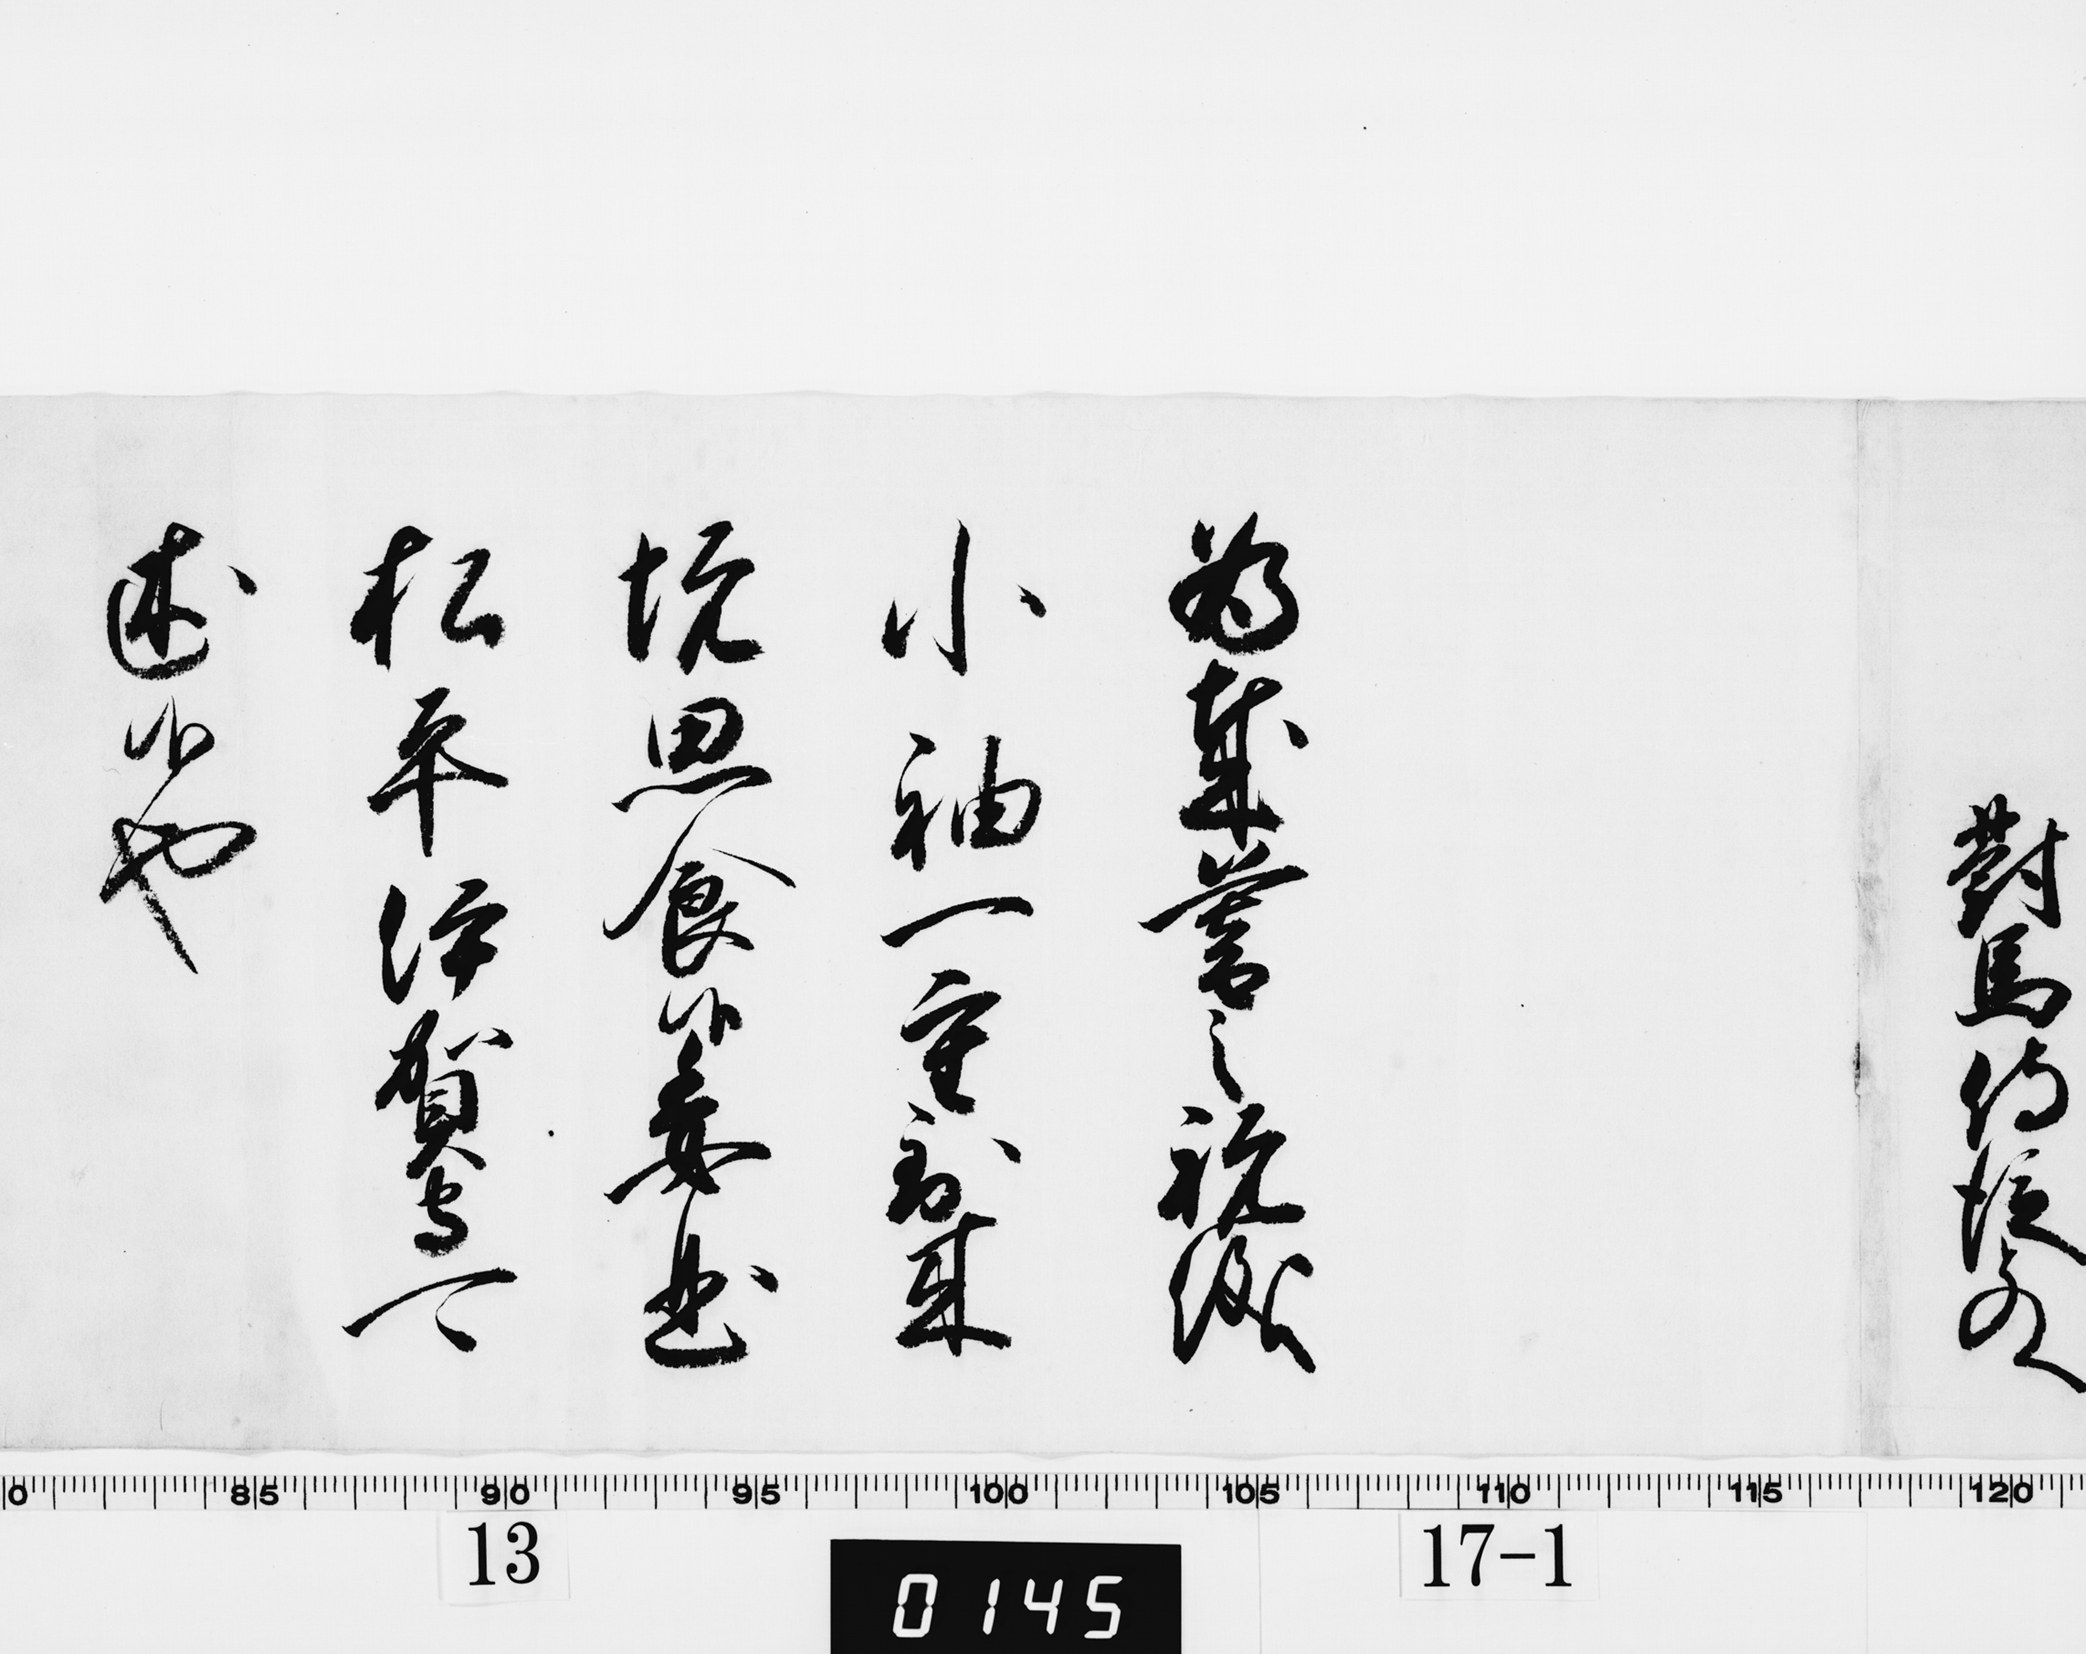 對馬侍従殿
為歳暮之祝儀
小袖一重到来
悦思食候委曲
松平伊賀守可
述候也
0 85 90 95 100 105 110 115 120
13
17-1
0145